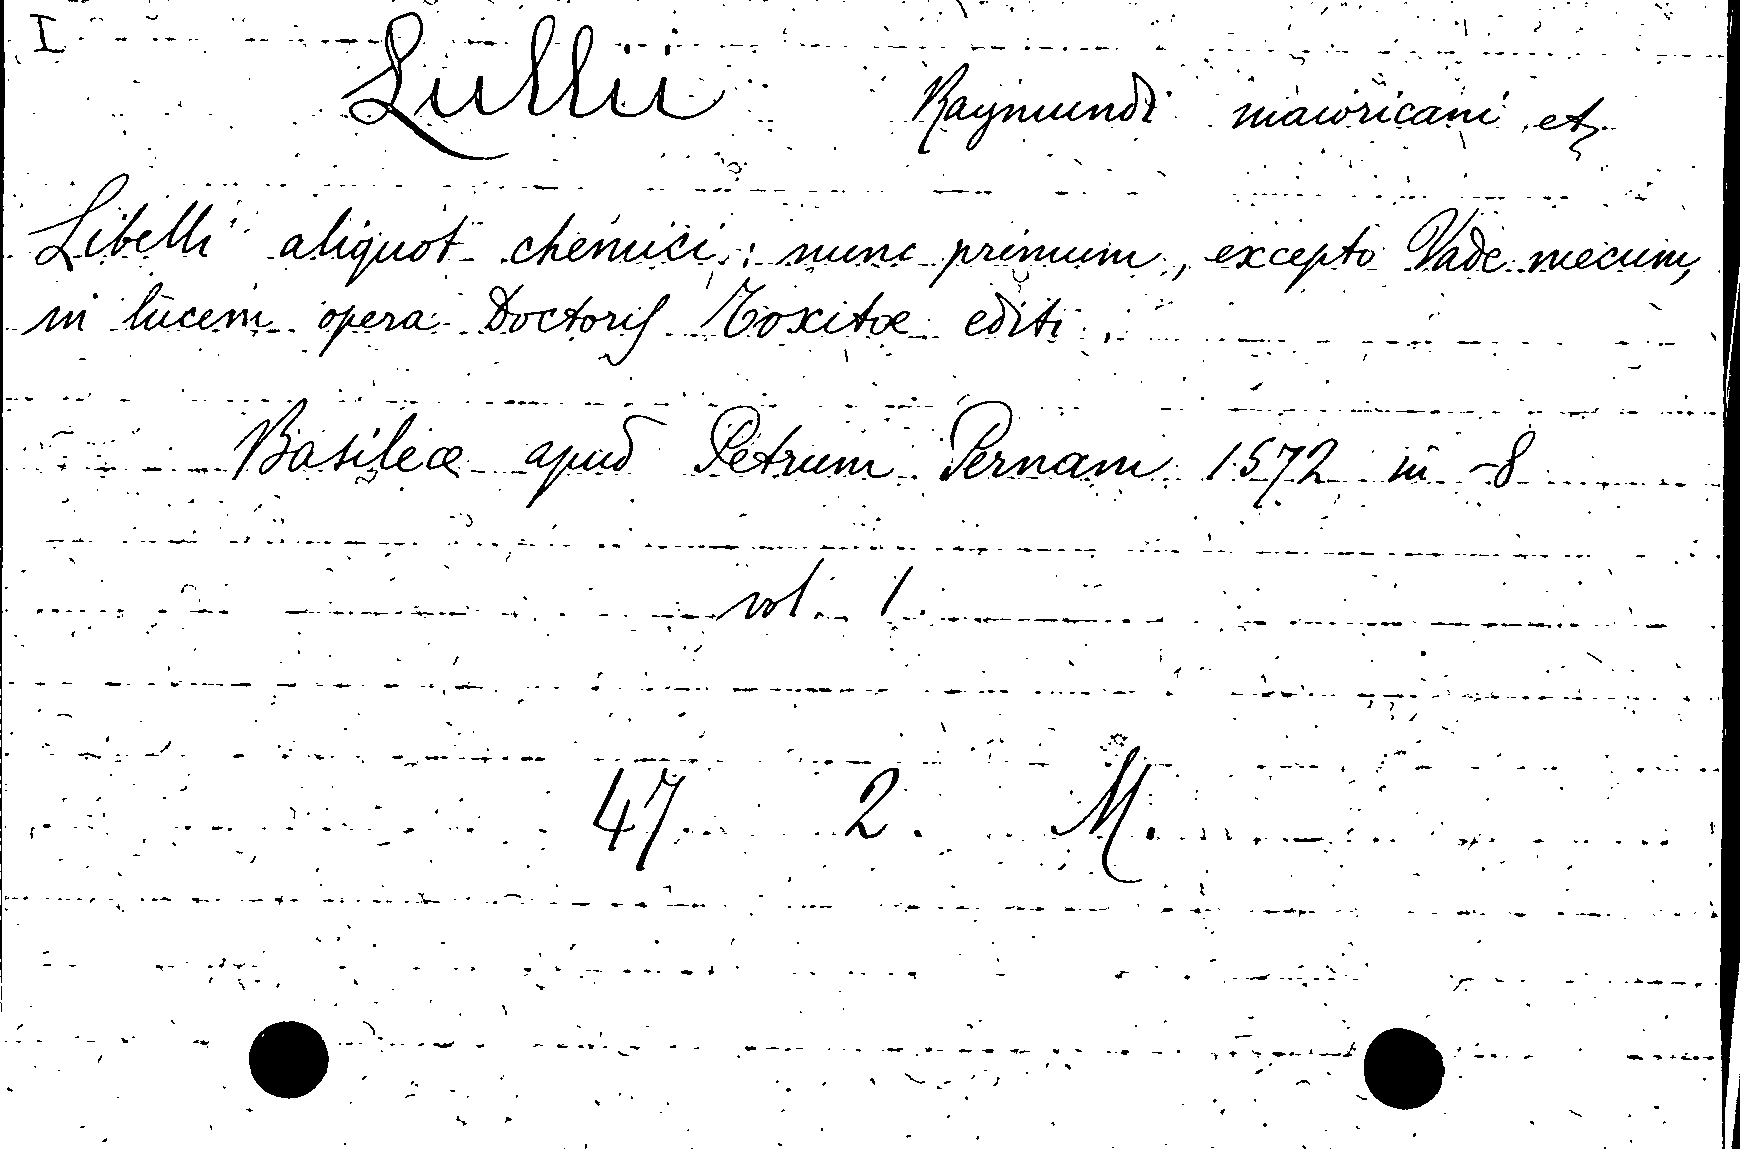 I
Lullii Raymundi maioricani etz
Libelli aliquot chemici: nunc primum, excepto Vade mecum,
in lucem opera Doctoris Toxitæ editi.
Basileæ apud Petrum Pernam 1572 in-8
vol. 1.
47 2. M.